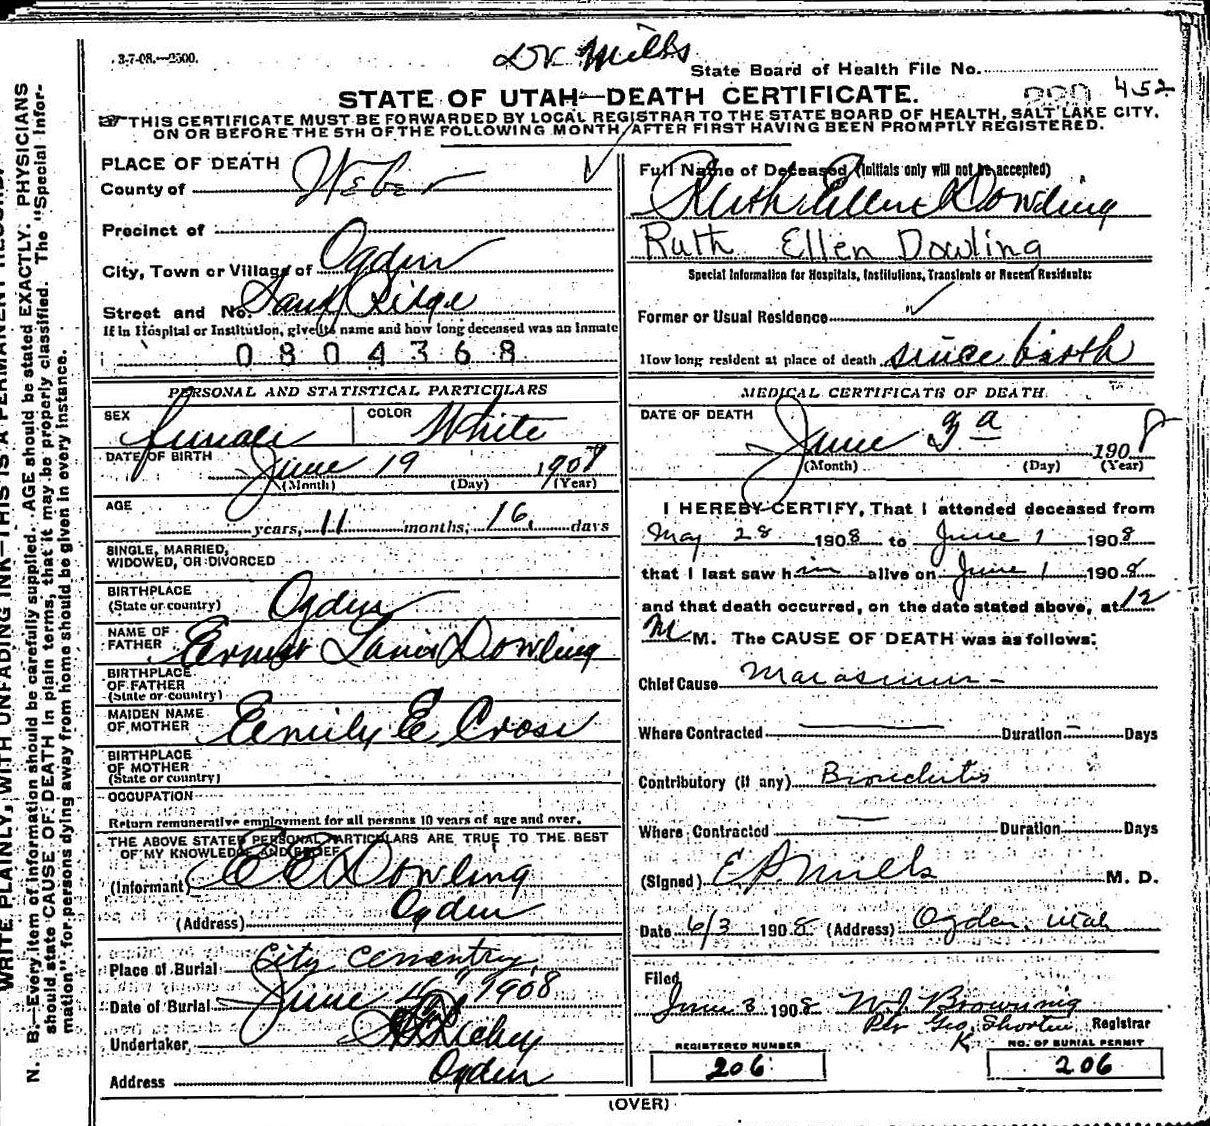 3-7-08.—2500.
Dr Mills
State Board of Health File No.
452
STATE OF UTAH—DEATH CERTIFICATE.
THIS CERTIFICATE MUST BE FORWARDED BY LOCAL REGISTRAR TO THE STATE BOARD OF HEALTH, SALT LAKE CITY,
ON OR BEFORE THE 5TH OF THE FOLLOWING MONTH, AFTER FIRST HAVING BEEN PROMPTLY REGISTERED.
PLACE OF DEATH
County of Weber
Precinct of
City, Town or Village of Ogden
Street and No. Sand Ridge
If in Hospital or Institution, give its name and how long deceased was an inmate
0804368
PERSONAL AND STATISTICAL PARTICULARS
SEX female COLOR White
DATE OF BIRTH June 19 1908
(Month) (Day) (Year)
AGE
years, 11 months, 16, days
SINGLE, MARRIED,
WIDOWED, OR DIVORCED
BIRTHPLACE
(State or country) Ogden
NAME OF
FATHER Ernest Dowling
BIRTHPLACE
OF FATHER
(State or country)
MAIDEN NAME
OF MOTHER Emily E Cross
BIRTHPLACE
OF MOTHER
(State or country)
OCCUPATION
Return remunerative employment for all persons 10 years of age and over.
THE ABOVE STATED PERSONAL PARTICULARS ARE TRUE TO THE BEST
OF MY KNOWLEDGE AND BELIEF
(Informant) E E Dowling
(Address) Ogden
Place of Burial City Cemetry
Date of Burial June 4" 1908
Undertaker, Richey
Address Ogden
Full Name of Deceased (Initials only will not be accepted)
Ruth Ellen Dowling
Ruth Ellen Dowling
Special Information for Hospitals, Institutions, Transients or Recent Residents:
Former or Usual Residence
How long resident at place of death since birth
MEDICAL CERTIFICATE OF DEATH
DATE OF DEATH
June 3 1908
(Month) (Day) (Year)
I HEREBY CERTIFY, That I attended deceased from
May 28 1908 to June 1 1908
that I last saw him alive on June 1 1908
and that death occurred, on the date stated above, at 12
M M. The CAUSE OF DEATH was as follows:
Chief Cause Marasmus -
Where Contracted Duration Days
Contributory (if any) Bronchitis
Where Contracted Duration Days
(Signed) E P Mills M. D.
Date 6/3 1908 (Address) Ogden, Utah
Filed
June 3 1908 W. J. Browning
Per Geo. Shorten Registrar
K
REGISTERED NUMBER
206
NO. OF BURIAL PERMIT
206
(OVER)
WRITE PLAINLY, WITH UNFADING INK—THIS IS A PERMANENT RECORD.
N. B.—Every item of information should be carefully supplied. AGE should be stated EXACTLY. PHYSICIANS
should state CAUSE OF DEATH in plain terms, that it may be properly classified. The "Special Infor-
mation" for persons dying away from home should be given in every instance.